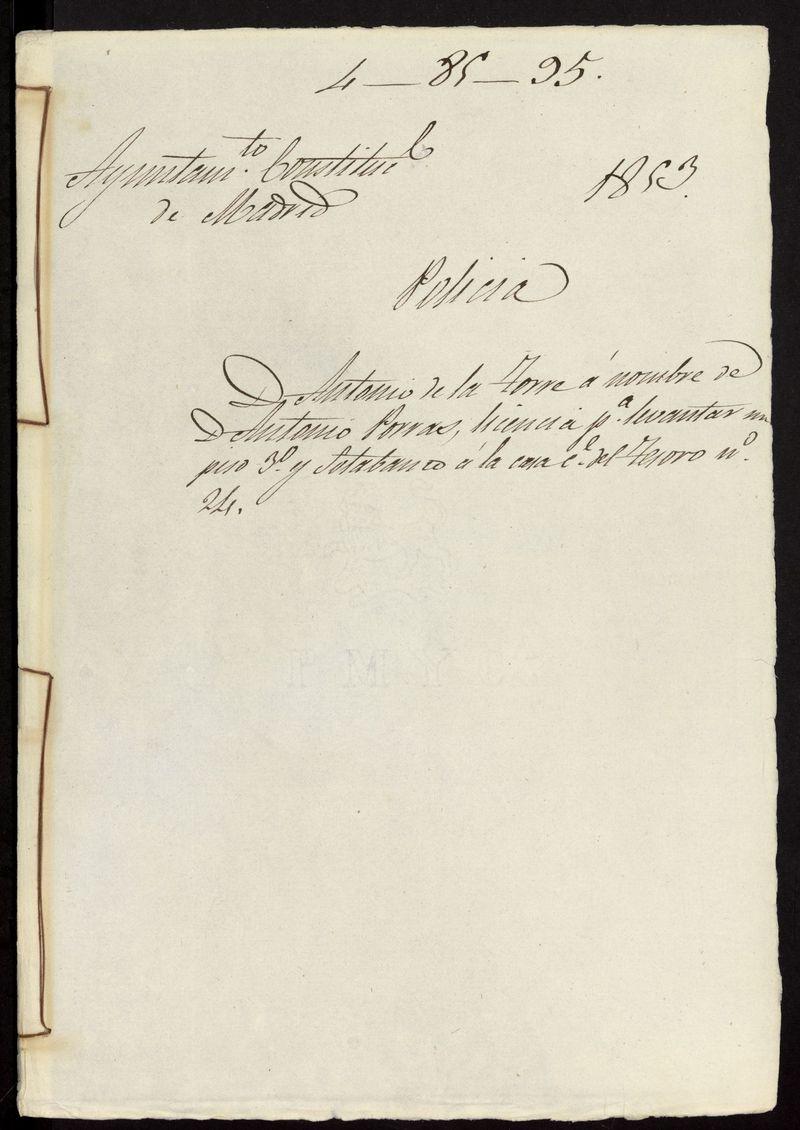 4 — 85 — 95.
Ayuntam.to Constituc.l
1853.
de Madrid
Policia
D. Antonio de la Torre á nombre de
D Antonio Porras, licencia p.a levantar un
piso 3.o y Sotabanco á la casa c.e del Tesoro n.o
24.